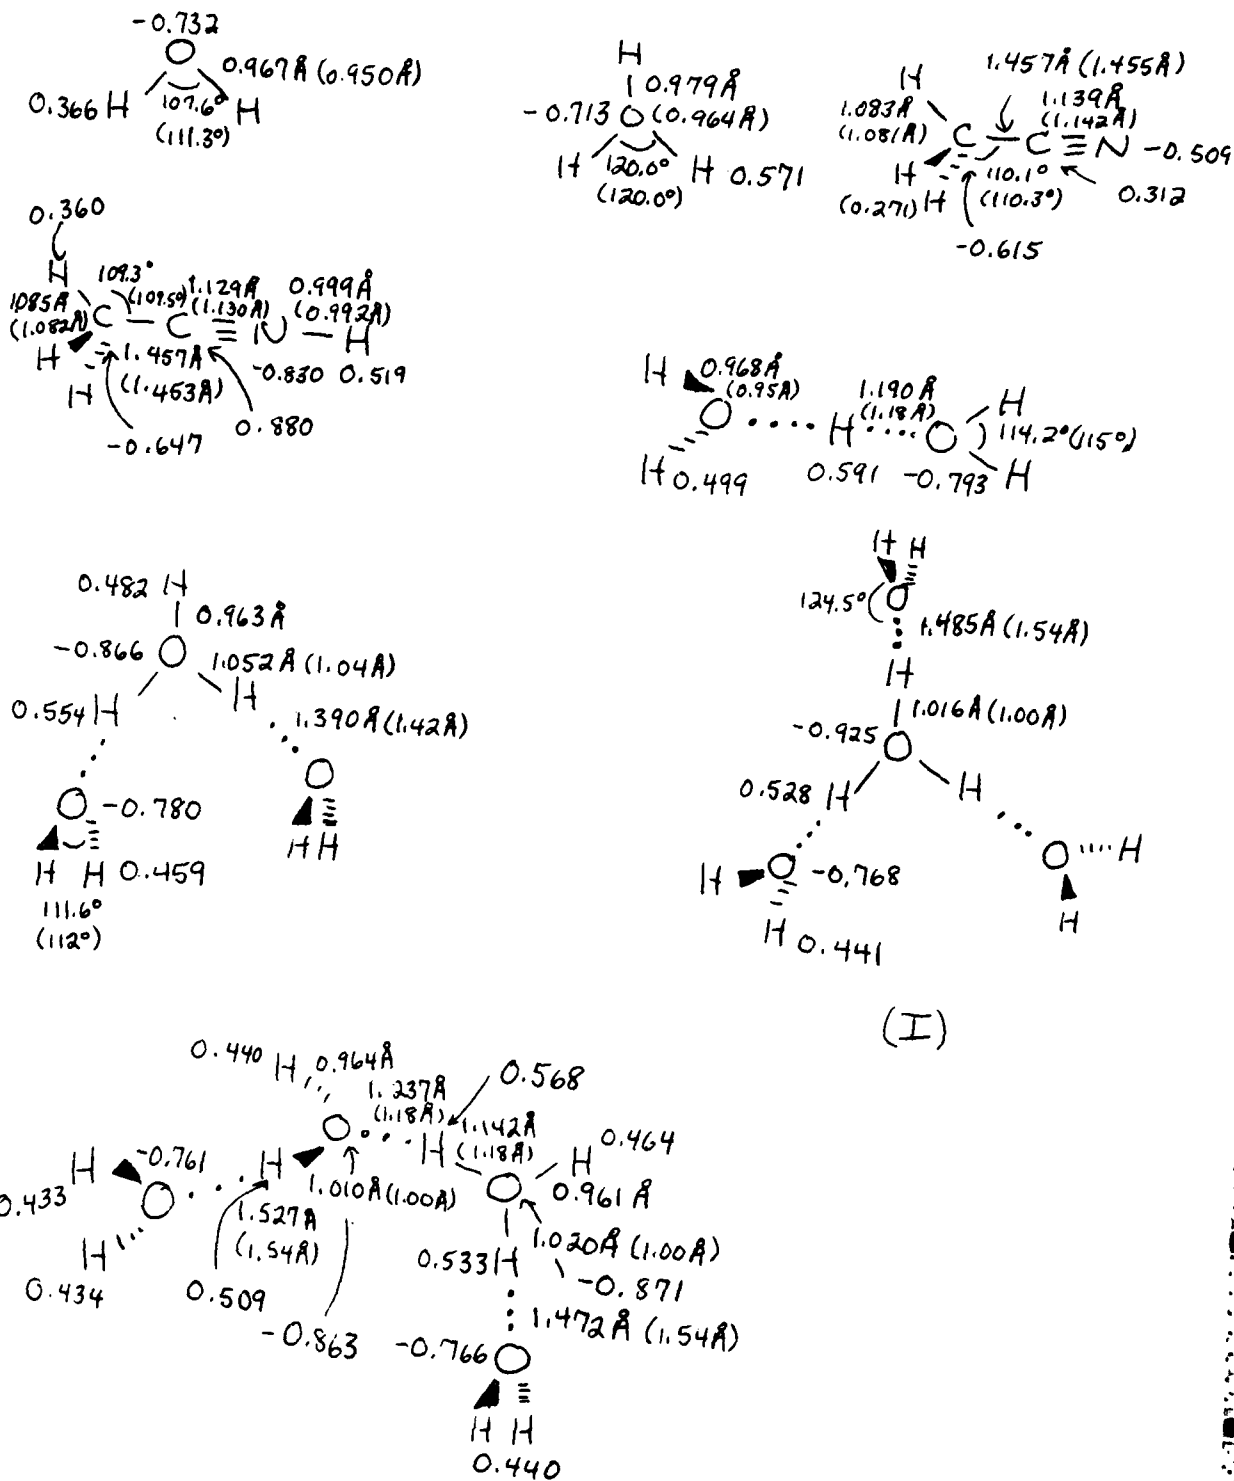 -0.732
O
0.967Å (0.950Å)
0.366 H
107.6°
H
(111.3°)
H
0.979Å
-0.713 O (0.964Å)
H
120.0°
H 0.571
(120.0°)
1.457Å (1.455Å)
H
1.083Å
(1.081Å)
1.139Å
(1.142Å)
C — C ≡ N -0.509
H
110.1°
(0.271) H
(110.3°)
0.312
-0.615
0.360
H
109.3°
(109.5°)
1.129Å
(1.130Å)
0.999Å
(0.992Å)
1.085Å
(1.082Å)
C — C ≡ N — H
H
1.457Å
-0.830 0.519
H
(1.453Å)
0.880
-0.647
H
0.968Å
(0.95Å)
1.190Å
(1.18Å)
H
O ···· H ···· O
114.2° (115°)
H 0.499
0.591 -0.793 H
0.482 H
0.963Å
-0.866 O
1.052Å (1.04Å)
0.554 H
H
1.390Å (1.42Å)
O -0.780
O
H H 0.459
H H
111.6°
(112°)
H H
124.5° O
1.485Å (1.54Å)
H
1.016Å (1.00Å)
-0.925 O
0.528 H
H
H O -0.768
O H
H 0.441
H
(I)
0.440 H 0.964Å
1.237Å
(1.18Å)
0.568
O
H
1.142Å
(1.18Å)
H 0.464
H
-0.761
H
1.010Å (1.00Å)
O
0.961Å
0.433
O
1.527Å
(1.54Å)
H
0.533 H
1.020Å (1.00Å)
-0.871
0.434
0.509
-0.863
1.472Å (1.54Å)
-0.766 O
H H
0.440